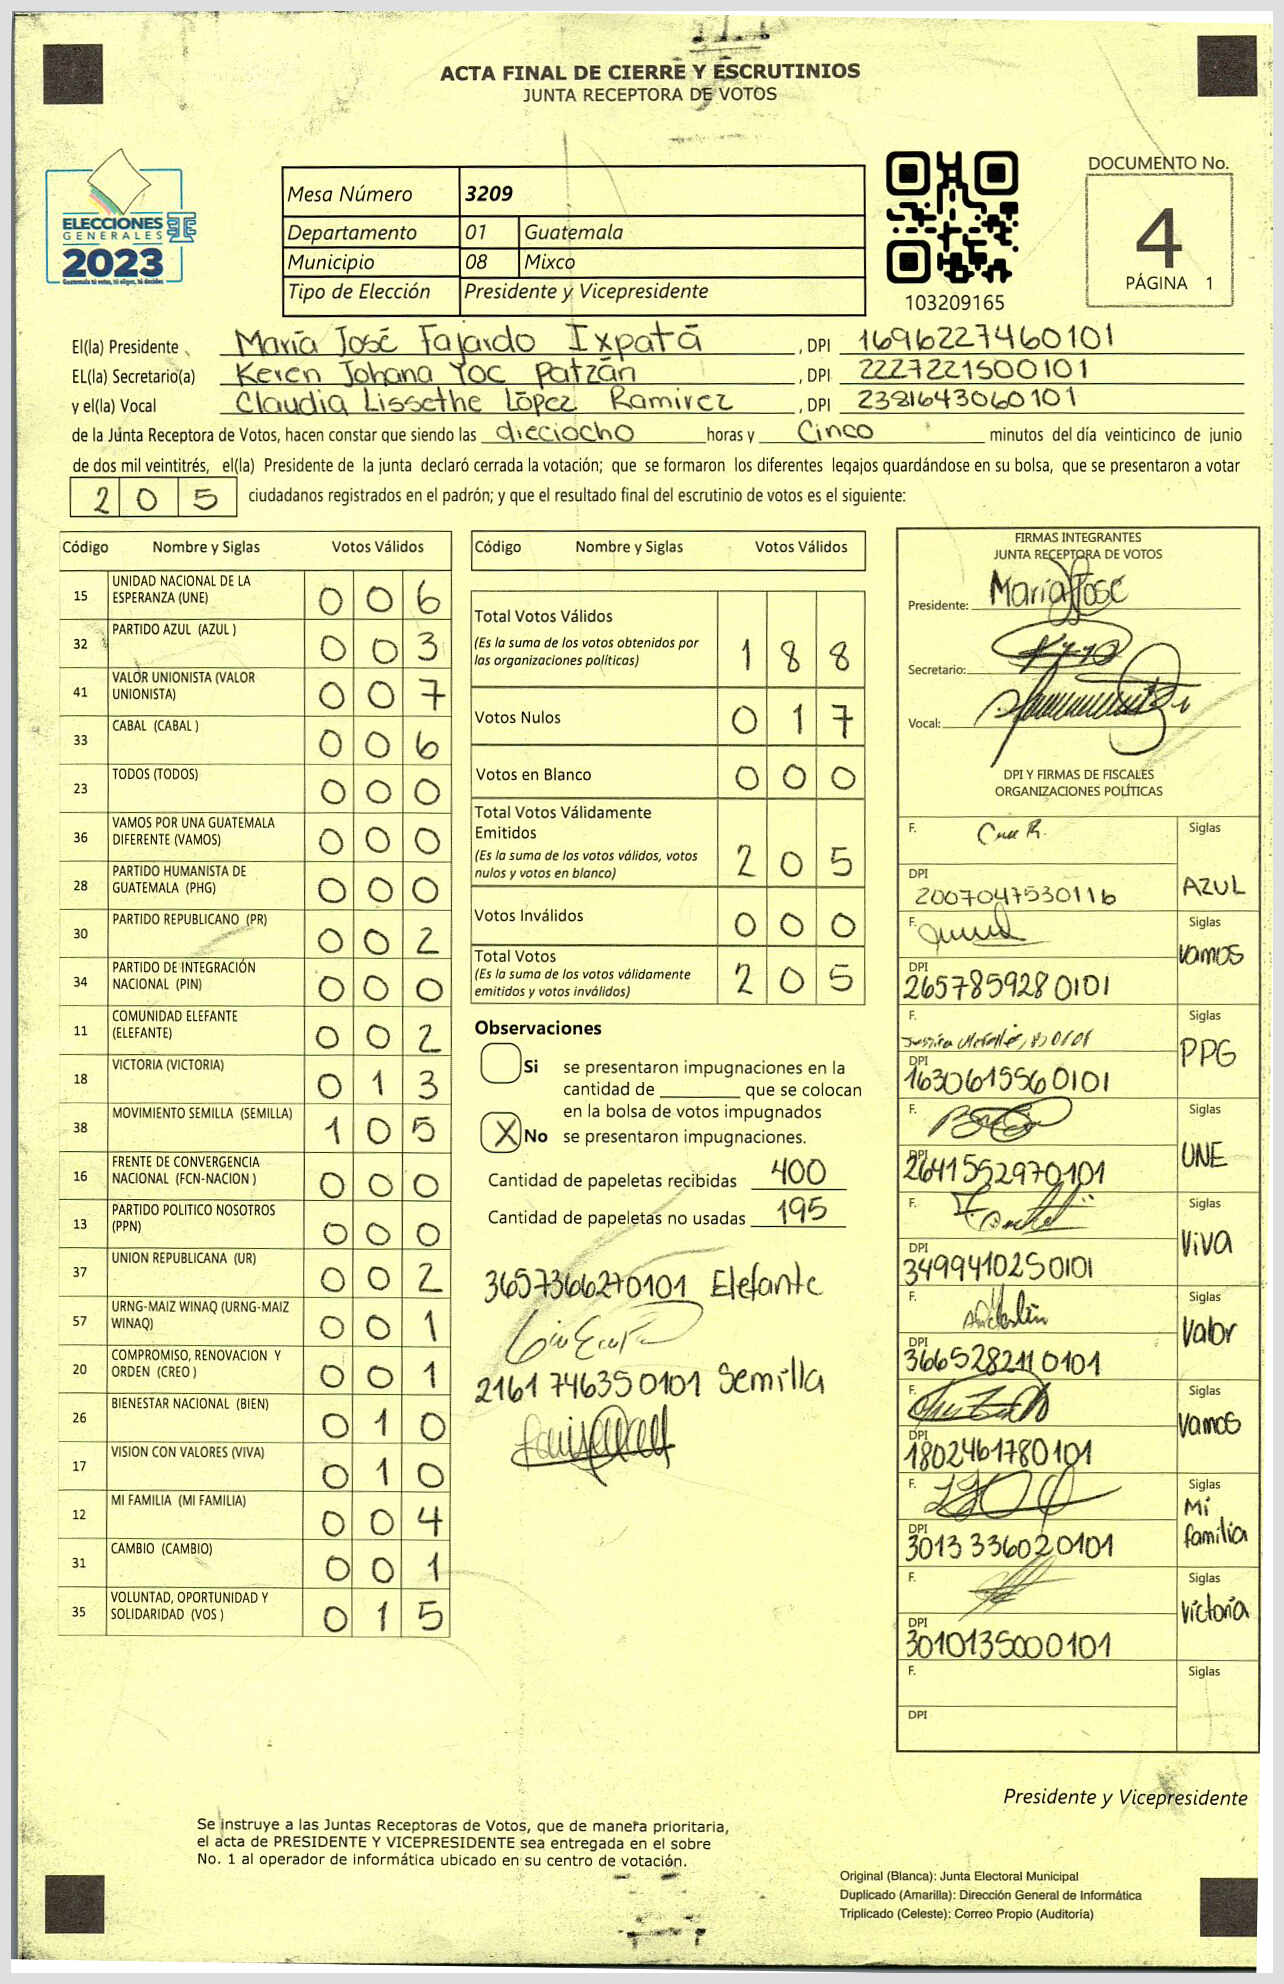 ACTA FINAL DE CIERRE Y ESCRUTINIOS
JUNTA RECEPTORA DE VOTOS
ELECCIONES
GENERALES
2023
Guatemala tú votas, tú eliges, tú decides
Mesa Número 3209
Departamento 01 Guatemala
Municipio 08 Mixco
Tipo de Elección Presidente y Vicepresidente
103209165
DOCUMENTO No.
4
PÁGINA 1
El(la) Presidente María José Fajardo Ixpatá, DPI 1696227460101
EL(la) Secretario(a) Keren Johana Yoc Patzán, DPI 2227221500101
y el(la) Vocal Claudia Lissethe López Ramirez, DPI 2381643060101
de la Junta Receptora de Votos, hacen constar que siendo las dieciocho horas y Cinco minutos del día veinticinco de junio
de dos mil veintitrés, el(la) Presidente de la junta declaró cerrada la votación; que se formaron los diferentes legajos guardándose en su bolsa, que se presentaron a votar
205 ciudadanos registrados en el padrón; y que el resultado final del escrutinio de votos es el siguiente:
Código Nombre y Siglas Votos Válidos
15 UNIDAD NACIONAL DE LA ESPERANZA (UNE) 006
32 PARTIDO AZUL (AZUL ) 003
41 VALOR UNIONISTA (VALOR UNIONISTA) 007
33 CABAL (CABAL ) 006
23 TODOS (TODOS) 000
36 VAMOS POR UNA GUATEMALA DIFERENTE (VAMOS) 000
28 PARTIDO HUMANISTA DE GUATEMALA (PHG) 000
30 PARTIDO REPUBLICANO (PR) 002
34 PARTIDO DE INTEGRACIÓN NACIONAL (PIN) 000
11 COMUNIDAD ELEFANTE (ELEFANTE) 002
18 VICTORIA (VICTORIA) 013
38 MOVIMIENTO SEMILLA (SEMILLA) 105
16 FRENTE DE CONVERGENCIA NACIONAL (FCN-NACION ) 000
13 PARTIDO POLITICO NOSOTROS (PPN) 000
37 UNION REPUBLICANA (UR) 002
57 URNG-MAIZ WINAQ (URNG-MAIZ WINAQ) 001
20 COMPROMISO, RENOVACION Y ORDEN (CREO ) 001
26 BIENESTAR NACIONAL (BIEN) 010
17 VISION CON VALORES (VIVA) 010
12 MI FAMILIA (MI FAMILIA) 004
31 CAMBIO (CAMBIO) 001
35 VOLUNTAD, OPORTUNIDAD Y SOLIDARIDAD (VOS ) 015
Código Nombre y Siglas Votos Válidos
Total Votos Válidos 188
(Es la suma de los votos obtenidos por
las organizaciones políticas)
Votos Nulos 017
Votos en Blanco 000
Total Votos Válidamente
Emitidos 205
(Es la suma de los votos válidos, votos
nulos y votos en blanco)
Votos Inválidos 000
Total Votos 205
(Es la suma de los votos válidamente
emitidos y votos inválidos)
Observaciones
Si se presentaron impugnaciones en la
cantidad de ________ que se colocan
en la bolsa de votos impugnados
X No se presentaron impugnaciones.
Cantidad de papeletas recibidas 400
Cantidad de papeletas no usadas 195
3657366270101 Elefante
2161746350101 Semilla
FIRMAS INTEGRANTES
JUNTA RECEPTORA DE VOTOS
Presidente: María José
Secretario:
Vocal:
DPI Y FIRMAS DE FISCALES
ORGANIZACIONES POLÍTICAS
F. Siglas
DPI 2007047530116 AZUL
F. Siglas
DPI 2657859280101 Vamos
F. Siglas
DPI 1630615560101 PPG
F. Siglas
DPI 2641552970101 UNE
F. Siglas
DPI 3499410250101 Viva
F. Siglas
DPI 3665282110101 Valor
F. Siglas
DPI 1802461780101 Vamos
F. Siglas
DPI 3013336020101 Mi familia
F. Siglas
DPI 3010135000101 Victoria
F. Siglas
DPI
Presidente y Vicepresidente
Se instruye a las Juntas Receptoras de Votos, que de manera prioritaria,
el acta de PRESIDENTE Y VICEPRESIDENTE sea entregada en el sobre
No. 1 al operador de informática ubicado en su centro de votación.
Original (Blanca): Junta Electoral Municipal
Duplicado (Amarilla): Dirección General de Informática
Triplicado (Celeste): Correo Propio (Auditoría)